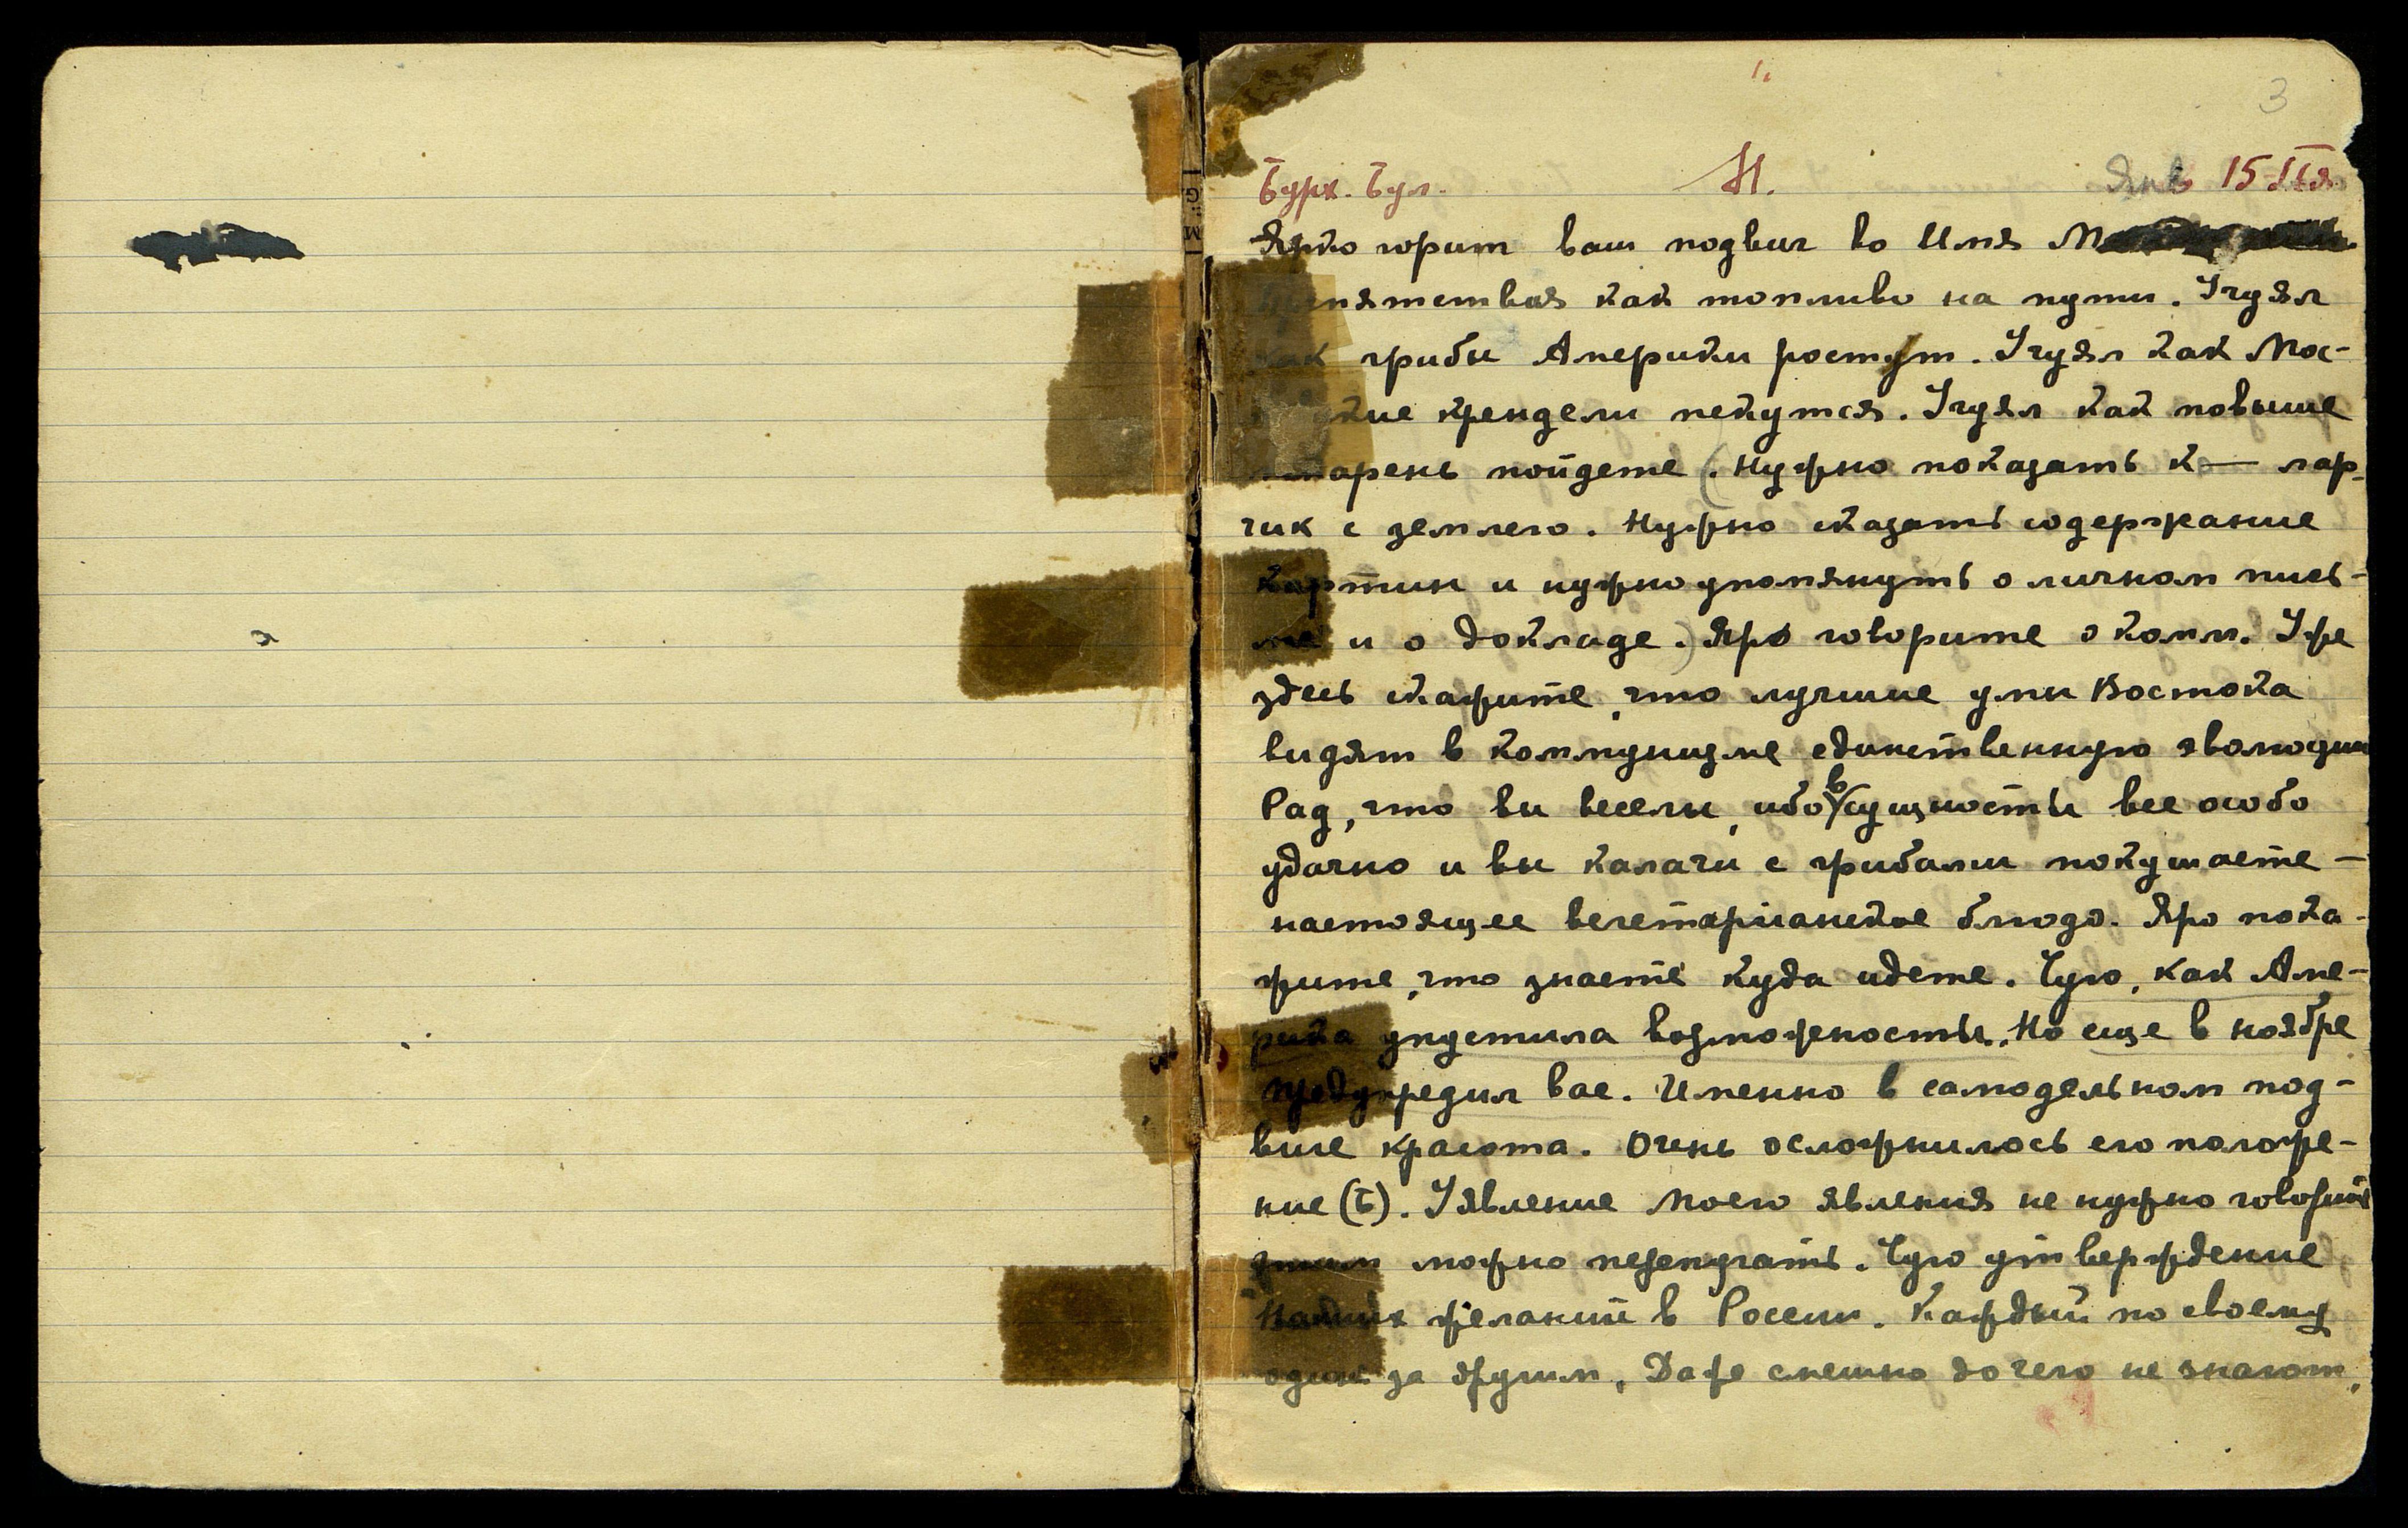 1.
3
Бурх. Бул. Н. Янв 15
Ярко горит ваш подвиг во Имя М
как топливо на пути. Ігуял
как грибы Америки ростут. Ігуял как Мос-
кие крендели пекутся. Ігуял как повыше
пойдете (. Нужно показать к— лар-
чик с землею. Нужно сказать содержание
картин и нужно упомянуть о личном пись-
ме и о докладе.) Яро говорите о комм. Уже
здесь скажите, что лучшие умы Востока
видят в коммунизме единственную эволюцию
Рад, что вы веселы, ибо в сущности все особо
удачно и вы калачи с грибами покушаете —
настоящее вегетарианское блюдо. Яро пока-
жите, что знаете куда идете. Чую, как Аме-
рика упустила возможность. Но еще в ноябре
предупредил вас. Именно в самодельном под-
виге красота. Очень осложнилось его положе-
ние (Б). Уявление Моего явления не нужно говорить
этим можно перепугать. Чую утверждение
Наших желаний в России. Каждый по своему
один за другим. Даже смешно до чего не знают,